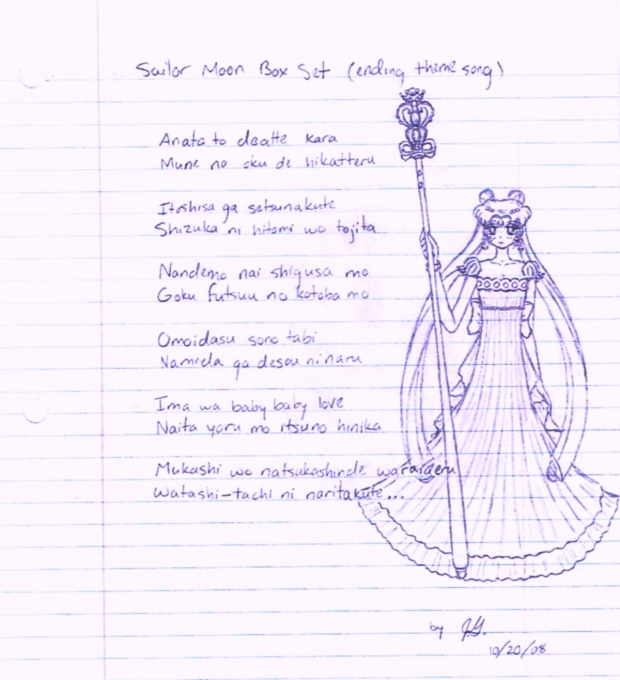 Sailor Moon Box Set (ending theme song)
Anata to deatte kara
Mune no oku de hikatteru
Itoshisa ga setsunakute
Shizuka ni hitomi wo tojita
Nandemo nai shigusa mo
Goku futsuu no kotoba mo
Omoidasu sono tabi
Namida ga desou ni naru
Ima wa baby baby love
Naita yoru mo itsuno hinika
Mukashi wo natsukashinde waraiaeru
Watashi-tachi ni naritakute...
by J.G.
10/20/08